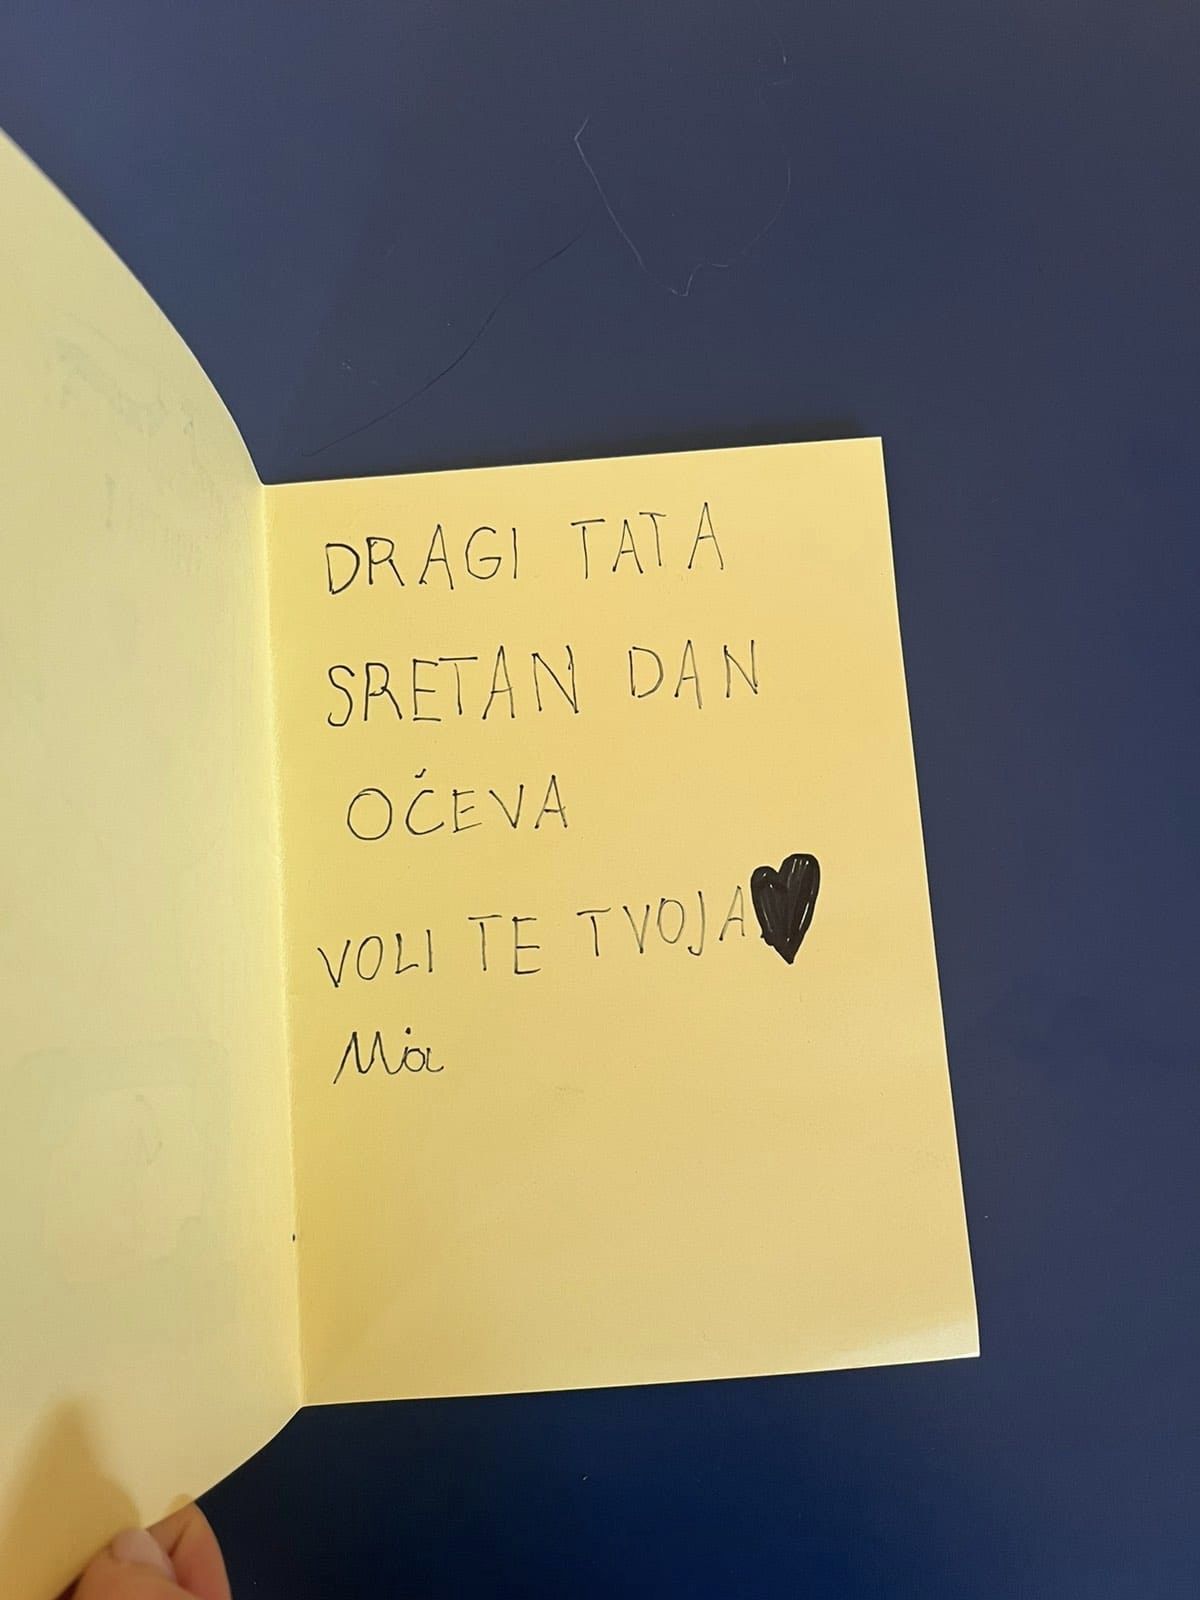 DRAGI TATA
SRETAN DAN
OČEVA
VOLI TE TVOJA
Mia